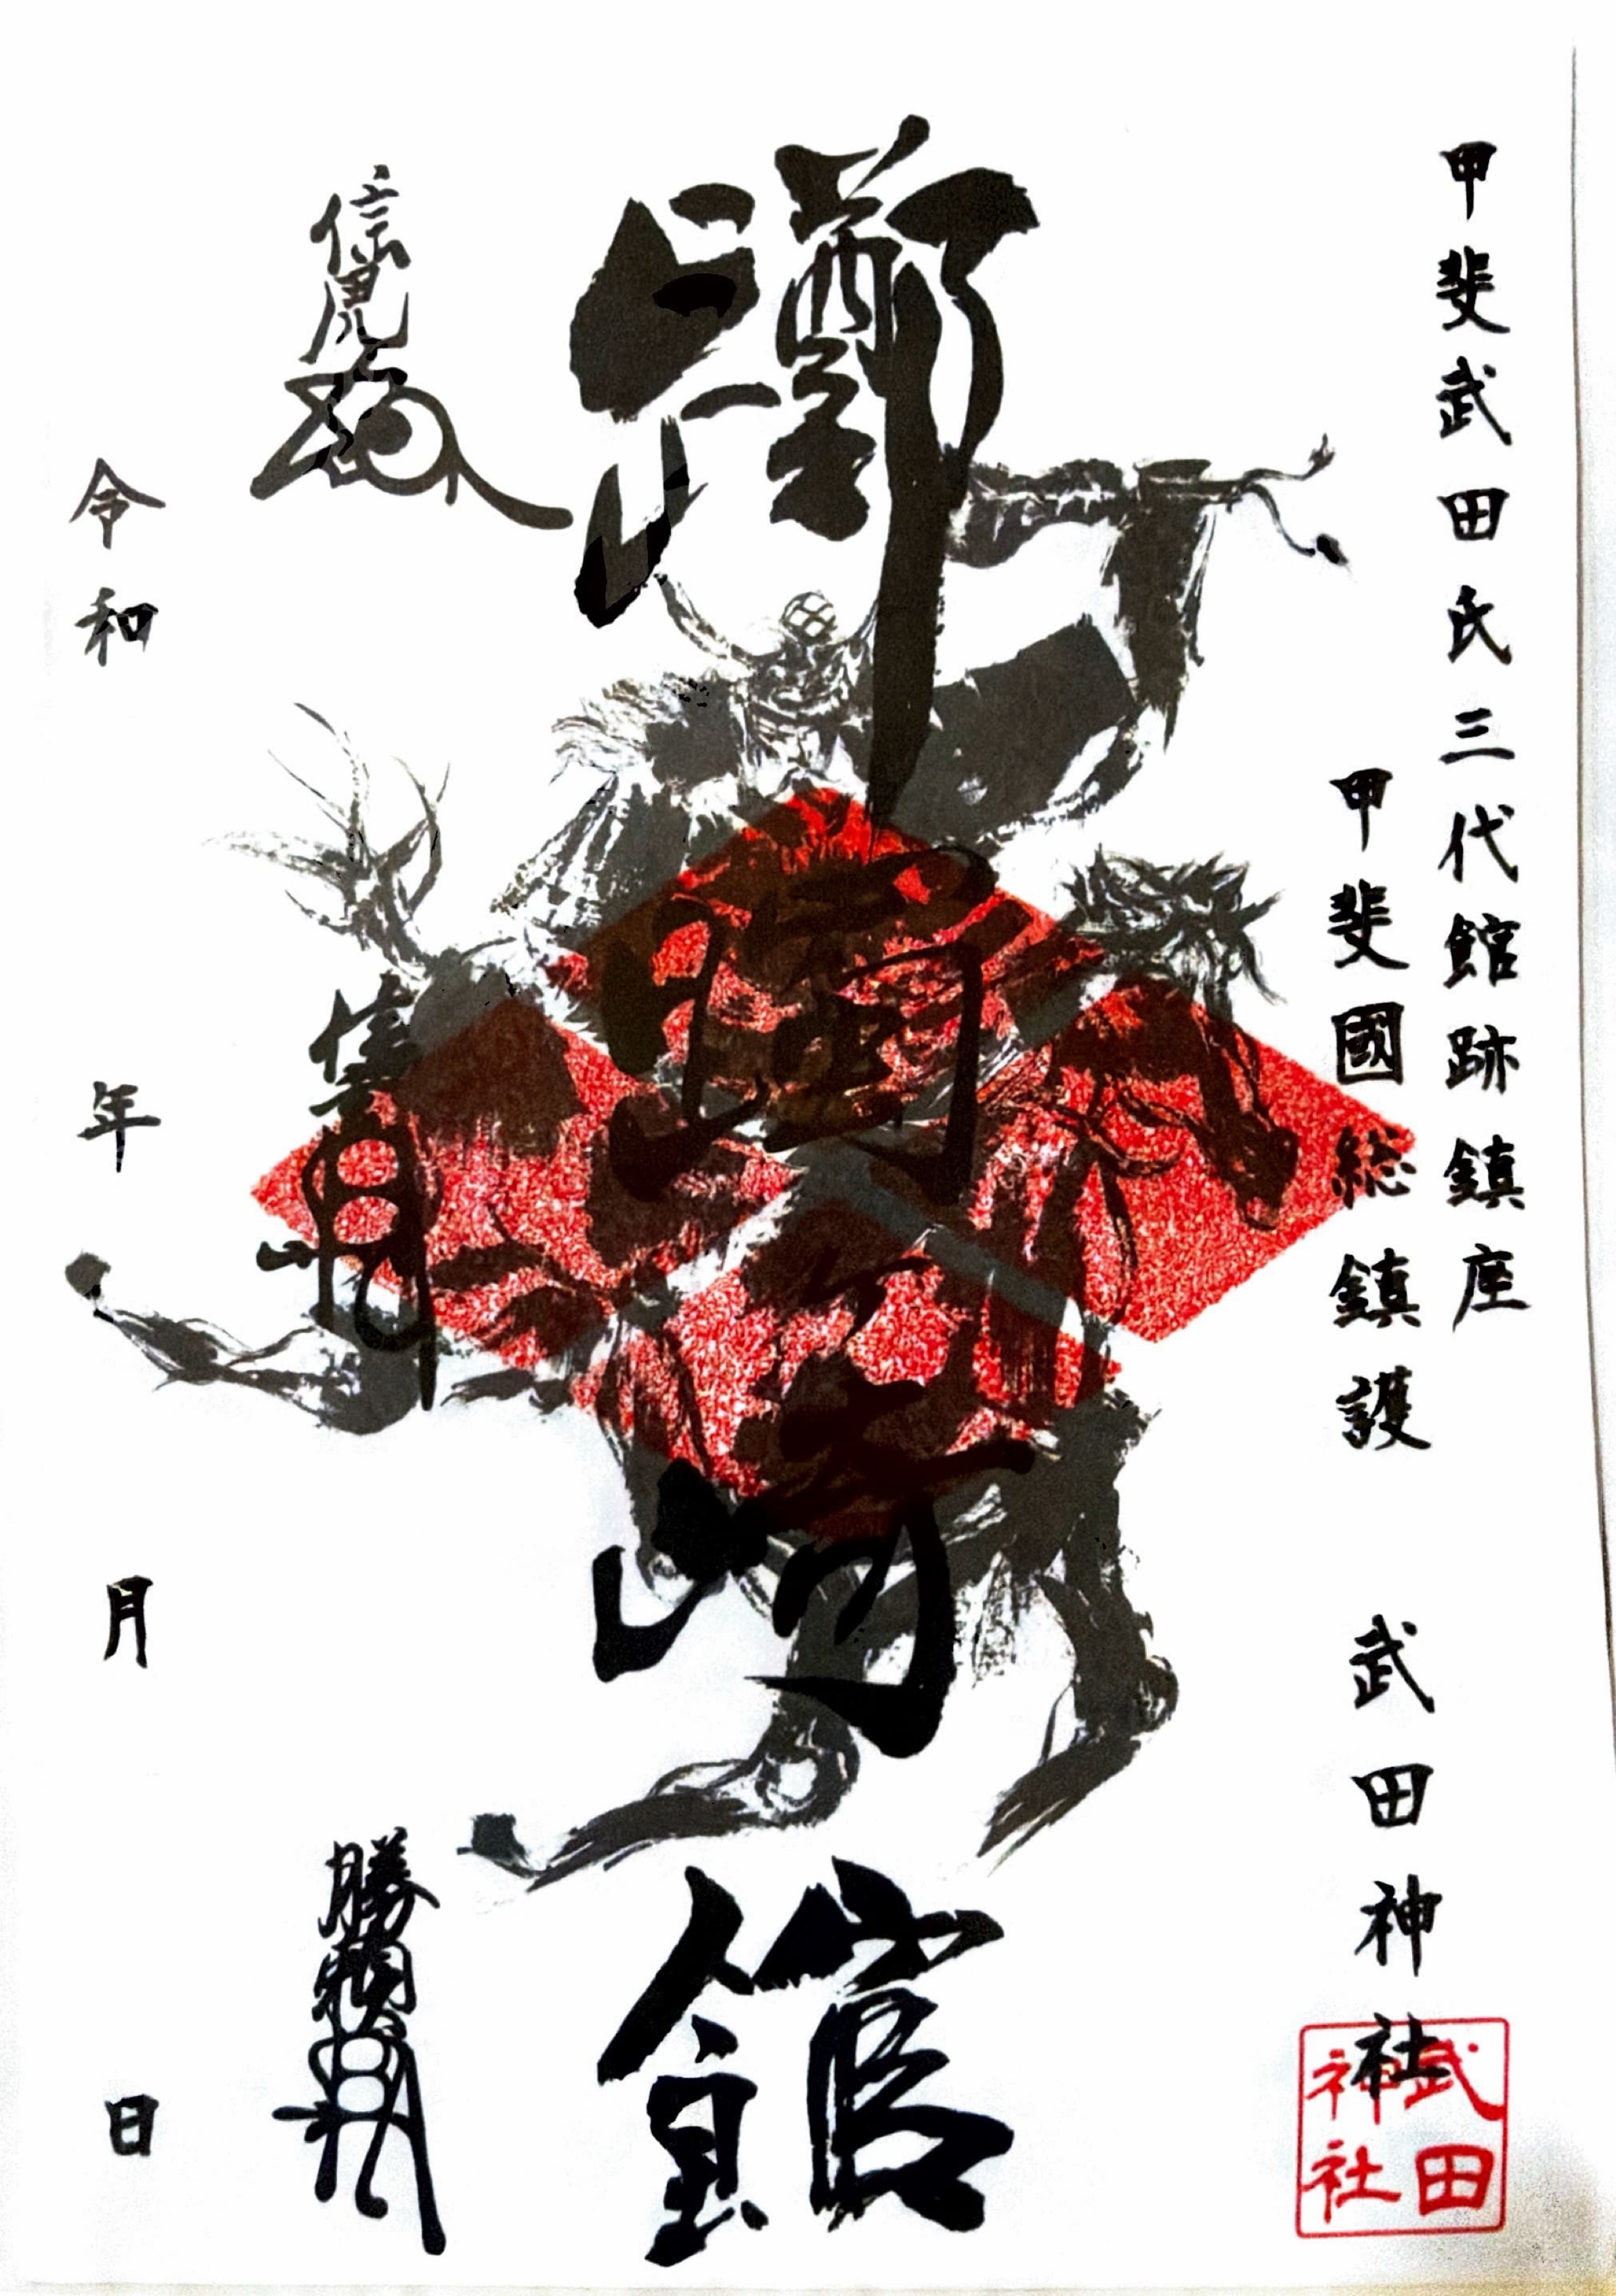 甲斐武田氏三代館跡鎮座
甲斐國総鎮護 武田神社
武田神社
躑躅ヶ崎館
信虎
信玄
勝頼
令和 年 月 日